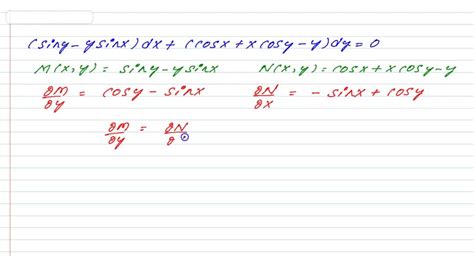 (siny-ysinx)dx+(cosx+xcosy-y)dy=0
M(x,y)=siny-ysinx N(x,y)=cosx+xcosy-y
∂M/∂y = cosy-sinx ∂N/∂x = -sinx+cosy
∂M/∂y = ∂N/∂